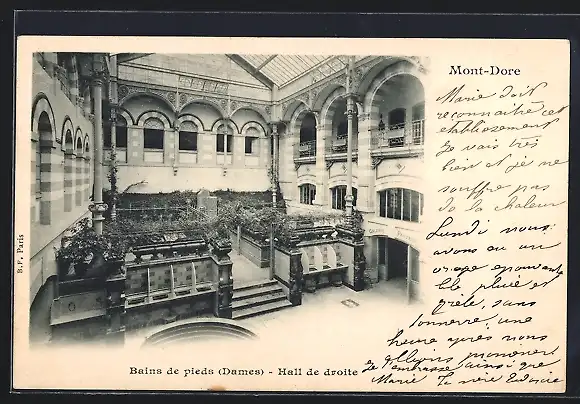 Mont-Dore
Marie doit
reconnaître cet
établissement
Je vais très
bien et je ne
souffre pas
de la chaleur
Lundi nous
avons eu un
orage épouvantable
pluie et
grêle, sans
tonnerre, une
heure après nous
allions nous promener
Je t'embrasse ainsi que
Marie
B.F. Paris
Bains de pieds (Dames) - Hall de droite